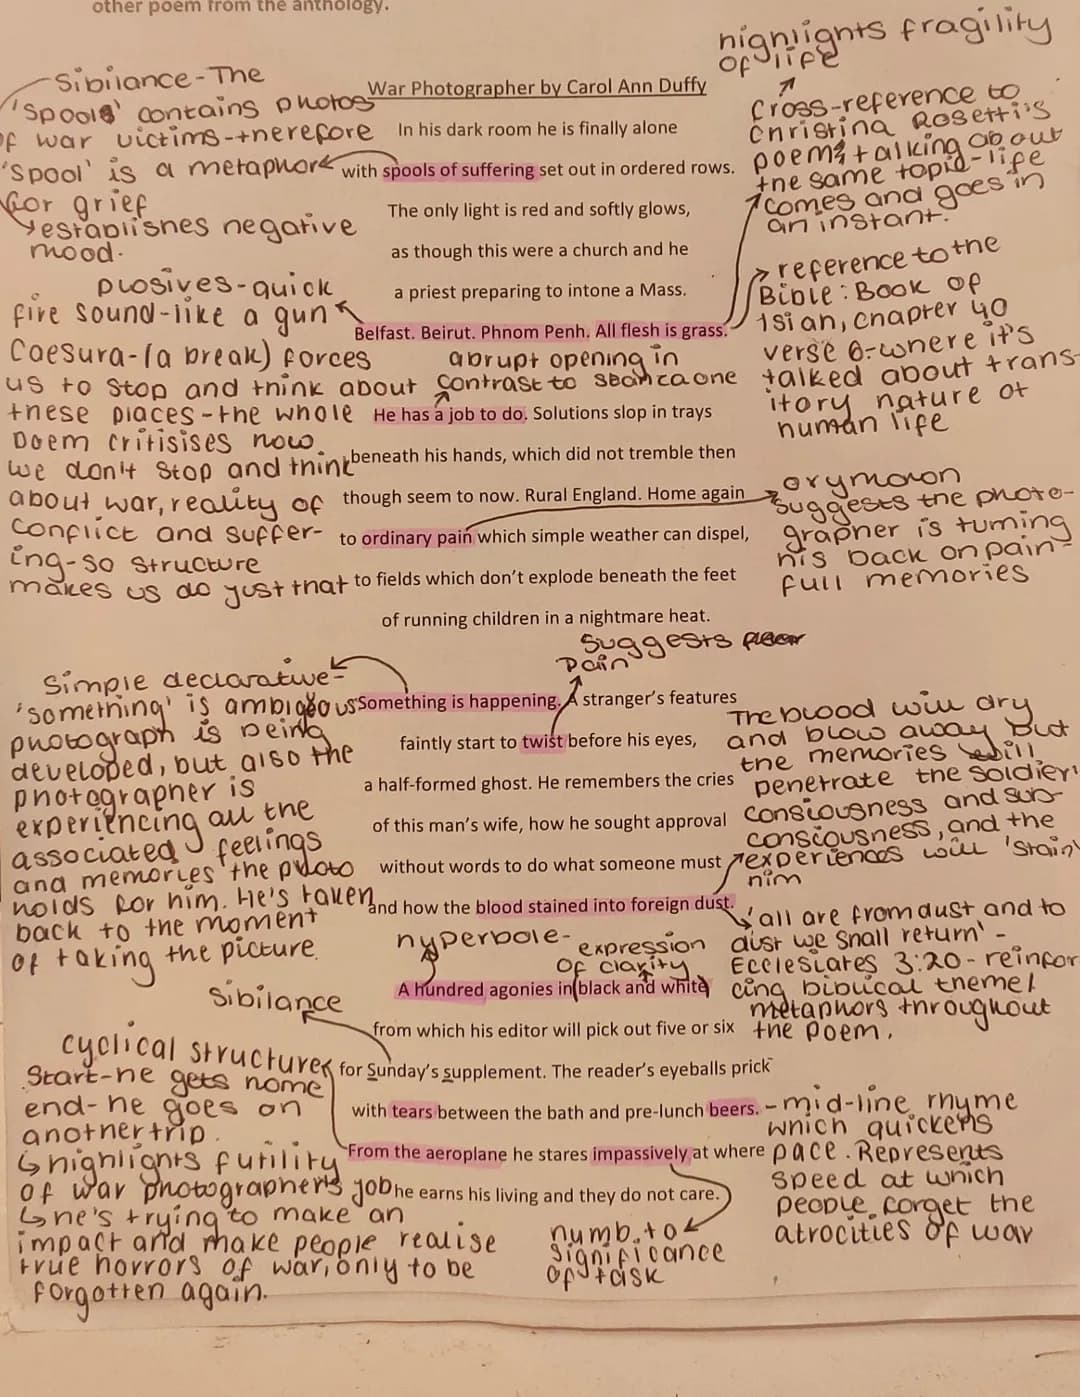 other poem from the anthology.
highlights fragility
of life
Sibilance-The
War Photographer by Carol Ann Duffy
'Spools' contains photos
of war victims-therefore
'Spool' is a metaphor
for grief
establishes negative
mood.
Cross-reference to
Christina Rosetti's
poem talking about
the same topic-life
comes and goes in
an instant.
In his dark room he is finally alone
with spools of suffering set out in ordered rows.
The only light is red and softly glows,
as though this were a church and he
a priest preparing to intone a Mass.
Belfast. Beirut. Phnom Penh. All flesh is grass.
plosives-quick
fire sound-like a gun
reference to the
Bible: Book of
Isian, chapter 40
verse 6-where it's
talked about trans-
itory nature of
human life
Caesura-(a break) forces
us to stop and think about
these places-the whole
poem critisises how
we don't stop and think
about war, reality of
conflict and suffer-
ing-so structure
makes us do just that
abrupt opening in
contrast to stanza one
He has a job to do. Solutions slop in trays
beneath his hands, which did not tremble then
though seem to now. Rural England. Home again
to ordinary pain which simple weather can dispel,
to fields which don't explode beneath the feet
of running children in a nightmare heat.
oxymoron
suggests the photo-
grapher is turning
his back on pain-
full memories
suggests
pain
Simple declarative-
'something' is ambigous
photograph is being
developed, but also the
photographer is
experiencing all the
associated feelings
and memories the photo
holds for him. He's taken
back to the moment
of taking the picture.
Something is happening. A stranger's features
faintly start to twist before his eyes,
a half-formed ghost. He remembers the cries
of this man's wife, how he sought approval
without words to do what someone must
and how the blood stained into foreign dust.
The blood will dry
and blow away but
the memories will
penetrate the soldier'
consiousness and sub-
consciousness, and the
experiences will 'stain'
him
'all are from dust and to
dust we shall return' -
Ecclesiates 3:20-reinfor
cing biblical theme/
metaphors throughout
the poem.
hyperbole-
expression
of clarity
Sibilance
A hundred agonies in black and white
from which his editor will pick out five or six
for Sunday's supplement. The reader's eyeballs prick
with tears between the bath and pre-lunch beers.
From the aeroplane he stares impassively at where
he earns his living and they do not care.
cyclical structure
Start-he gets home
end-he goes on
another trip.
highlights futility
of war photographer's job
he's trying to make an
impact and make people realise
true horrors of war, only to be
forgotten again.
-mid-line rhyme
which quickens
pace. Represents
speed at which
people forget the
atrocities of war
numb to
significance
of task